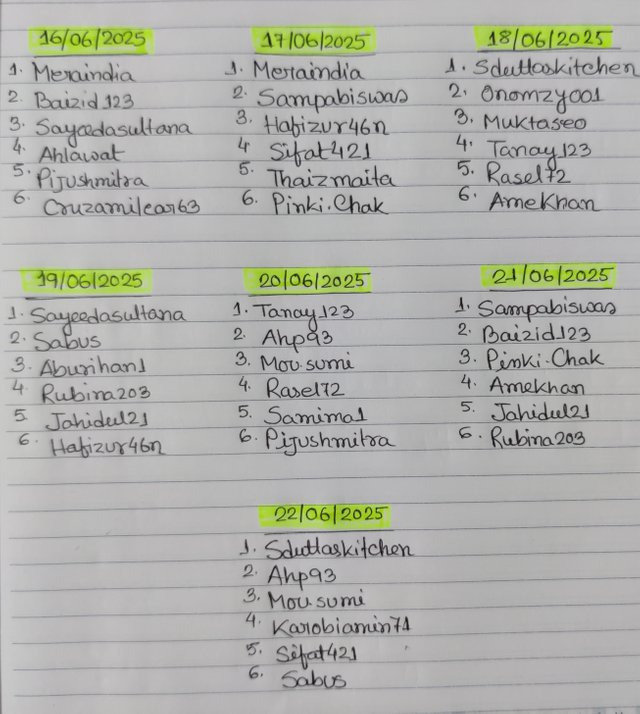 16/06/2025
1. Meraindia
2. Baizid123
3. Sayeedasultana
4. Ahlawat
5. Pijushmitra
6. Cruzamilcar63
17/06/2025
1. Meraindia
2. Sampabiswas
3. Hafizur46n
4 Sifat421
5. Thaizmaita
6. Pinki.Chak
18/06/2025
1. Sduttaskitchen
2. Onomzy001
3. Muktaseo
4. Tanay123
5. Rasel72
6. Amekhan
19/06/2025
1. Sayeedasultana
2. Sabus
3. Aburihan1
4. Rubina203
5. Jahidul21
6. Hafizur46n
20/06/2025
1. Tanay123
2. Ahp93
3. Mou.sumi
4. Rasel72
5. Samima1
6. Pijushmitra
21/06/2025
1. Sampabiswas
2. Baizid123
3. Pinki.Chak
4. Amekhan
5. Jahidul21
6. Rubina203
22/06/2025
1. Sduttaskitchen
2. Ahp93
3. Mou.sumi
4. Karobiamin71
5. Sifat421
6. Sabus